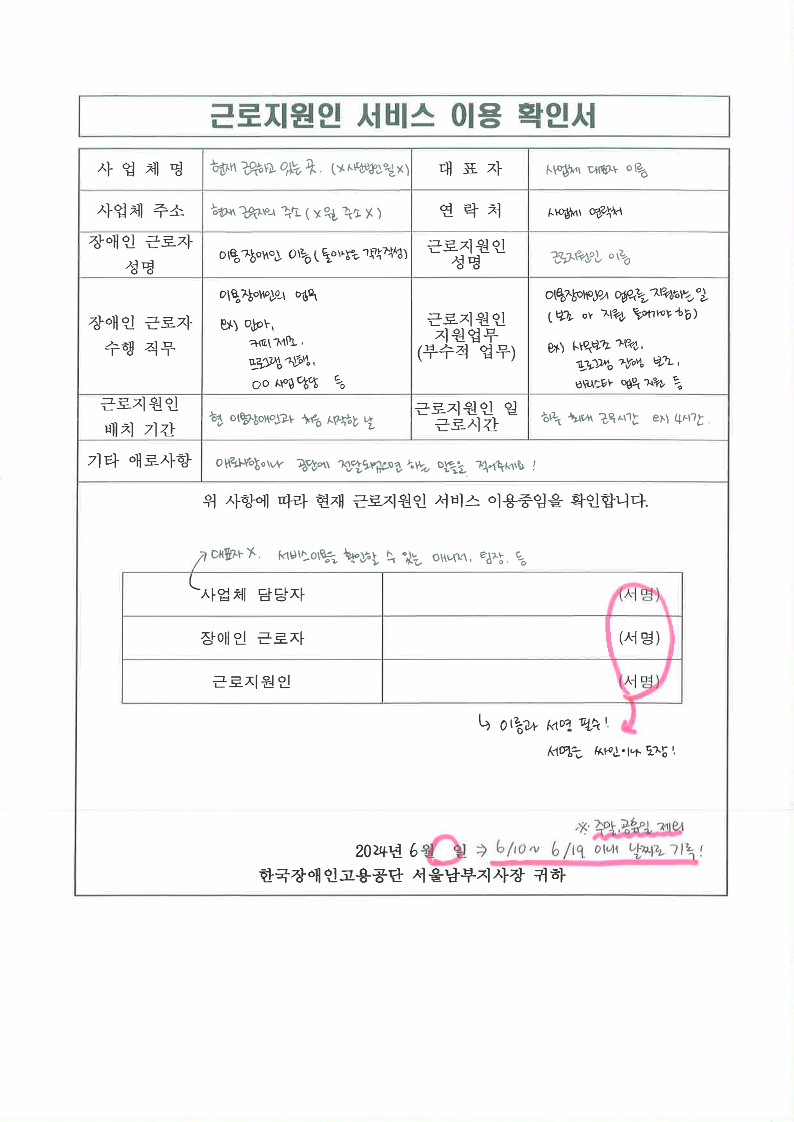 근로지원인 서비스 이용 확인서
사 업 체 명
현재 근무하고 있는 곳. (X 사단법인 일 X)
대 표 자
사업체 대표자 이름
사업체 주소
현재 근무지의 주소 (X 월 주소 X)
연 락 처
사업체 연락처
장애인 근로자
성명
이용장애인 이름 (둘이상은 각각작성)
근로지원인
성명
근로지원인 이름
장애인 근로자
수행 직무
이용장애인의 업무
ex) 안마,
커피 제조,
프로그램 진행,
OO 사업 담당 등
근로지원인
지원업무
(부수적 업무)
이용장애인의 업무를 지원하는 일
(보조 or 지원 들어가야 함)
ex) 사무보조 지원,
프로그램 진행 보조,
바리스타 업무 지원 등
근로지원인
배치 기간
현 이용장애인과 처음 시작한 날
근로지원인 일
근로시간
하루 최대 근무시간 ex) 4시간.
기타 애로사항
애로사항이나 공단에 전달되었으면 하는 말들을 적어주세요!
위 사항에 따라 현재 근로지원인 서비스 이용중임을 확인합니다.
대표자 X. 서비스이용을 확인할 수 있는 매니저, 팀장. 등
사업체 담당자
(서명)
장애인 근로자
(서명)
근로지원인
(서명)
↳ 이름과 서명 필수!
서명은 싸인이나 도장!
※ 주말, 공휴일 제외
2024년 6월 일 ⇒ 6/10 ~ 6/19 이내 날짜로 기록!
한국장애인고용공단 서울남부지사장 귀하